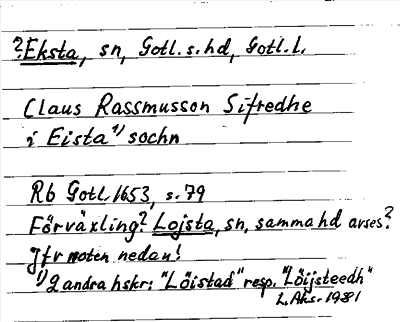 ?Eksta, sn, Gotl. s. hd, Gotl. l.
Claus Rassmusson Sifredhe
i Eista¹⁾ sochn
Rb Gotl. 1653, s. 79
Förväxling? Lojsta, sn, samma hd avses?
Jfr noten nedan!
¹⁾ 2 andra hskr: "Löistad" resp. "Löijsteedh"
L. Ahs. 1981